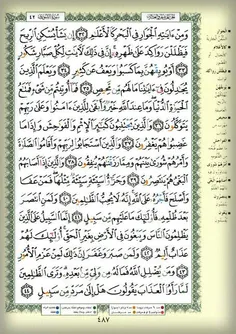 سُورَةُ الشُّورَىٰ ٤٢
وَمِنْ ءَايَٰتِهِ ٱلْجَوَارِ فِى ٱلْبَحْرِ كَٱلْأَعْلَٰمِ ٣٢ إِن يَشَأْ يُسْكِنِ ٱلرِّيحَ
فَيَظْلَلْنَ رَوَاكِدَ عَلَىٰ ظَهْرِهِۦٓ إِنَّ فِى ذَٰلِكَ لَءَايَٰتٍ لِّكُلِّ صَبَّارٍ شَكُورٍ
٣٣ أَوْ يُوبِقْهُنَّ بِمَا كَسَبُوا۟ وَيَعْفُ عَن كَثِيرٍ ٣٤ وَيَعْلَمَ ٱلَّذِينَ
يُجَٰدِلُونَ فِىٓ ءَايَٰتِنَا مَا لَهُم مِّن مَّحِيصٍ ٣٥ فَمَآ أُوتِيتُم مِّن شَىْءٍ فَمَتَٰعُ
ٱلْحَيَوٰةِ ٱلدُّنْيَا وَمَا عِندَ ٱللَّهِ خَيْرٌ وَأَبْقَىٰ لِلَّذِينَ ءَامَنُوا۟ وَعَلَىٰ رَبِّهِمْ
يَتَوَكَّلُونَ ٣٦ وَٱلَّذِينَ يَجْتَنِبُونَ كَبَٰٓئِرَ ٱلْإِثْمِ وَٱلْفَوَٰحِشَ وَإِذَا
مَا غَضِبُوا۟ هُمْ يَغْفِرُونَ ٣٧ وَٱلَّذِينَ ٱسْتَجَابُوا۟ لِرَبِّهِمْ وَأَقَامُوا۟ ٱلصَّلَوٰةَ
وَأَمْرُهُمْ شُورَىٰ بَيْنَهُمْ وَمِمَّا رَزَقْنَٰهُمْ يُنفِقُونَ ٣٨ وَٱلَّذِينَ إِذَآ أَصَابَهُمُ
ٱلْبَغْىُ هُمْ يَنتَصِرُونَ ٣٩ وَجَزَٰٓؤُا۟ سَيِّئَةٍ سَيِّئَةٌ مِّثْلُهَا فَمَنْ عَفَا
وَأَصْلَحَ فَأَجْرُهُۥ عَلَى ٱللَّهِ إِنَّهُۥ لَا يُحِبُّ ٱلظَّٰلِمِينَ ٤٠ وَلَمَنِ ٱنتَصَرَ
بَعْدَ ظُلْمِهِۦ فَأُو۟لَٰٓئِكَ مَا عَلَيْهِم مِّن سَبِيلٍ ٤١ إِنَّمَا ٱلسَّبِيلُ عَلَى ٱلَّذِينَ
يَظْلِمُونَ ٱلنَّاسَ وَيَبْغُونَ فِى ٱلْأَرْضِ بِغَيْرِ ٱلْحَقِّ أُو۟لَٰٓئِكَ لَهُمْ
عَذَابٌ أَلِيمٌ ٤٢ وَلَمَن صَبَرَ وَغَفَرَ إِنَّ ذَٰلِكَ لَمِنْ عَزْمِ ٱلْأُمُورِ
٤٣ وَمَن يُضْلِلِ ٱللَّهُ فَمَا لَهُۥ مِن وَلِىٍّ مِّنۢ بَعْدِهِۦ وَتَرَى ٱلظَّٰلِمِينَ
لَمَّا رَأَوُا۟ ٱلْعَذَابَ يَقُولُونَ هَلْ إِلَىٰ مَرَدٍّ مِّن سَبِيلٍ ٤٤
٤٨٧